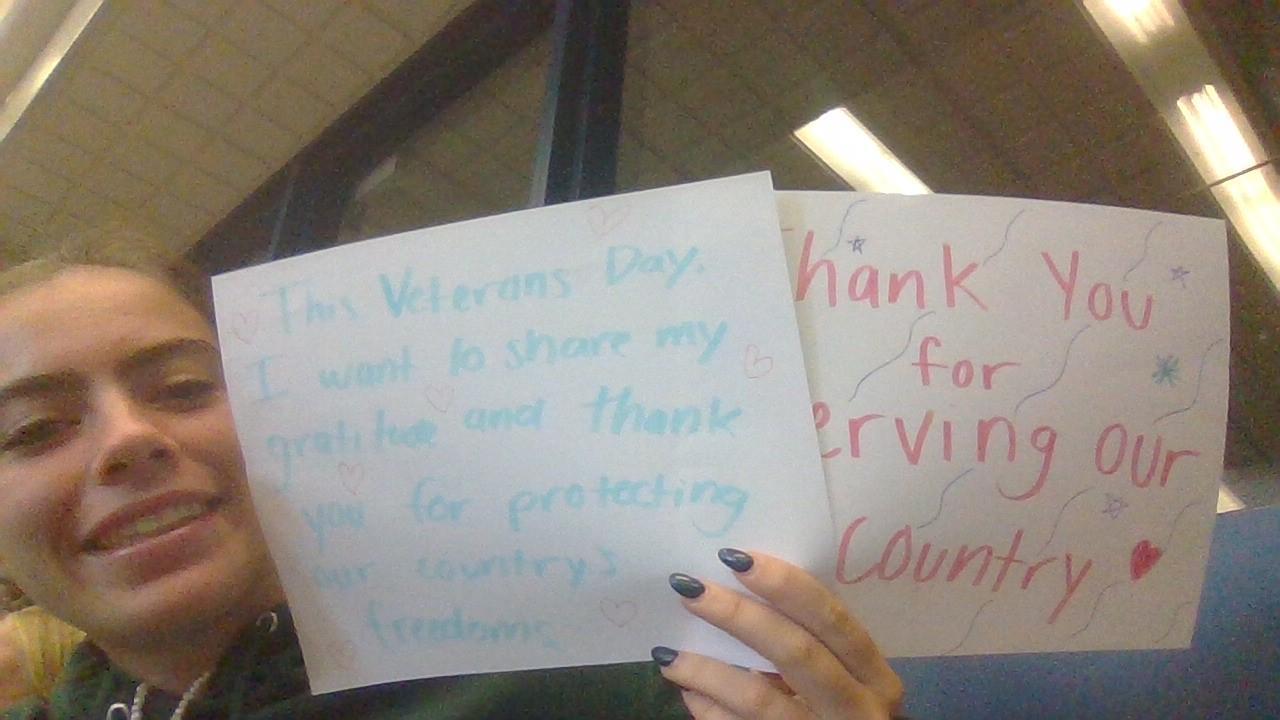 This Veterans Day.
I want to share my
gratitude and thank
you for protecting
our countrys
freedoms
Thank You
for
erving our
Country